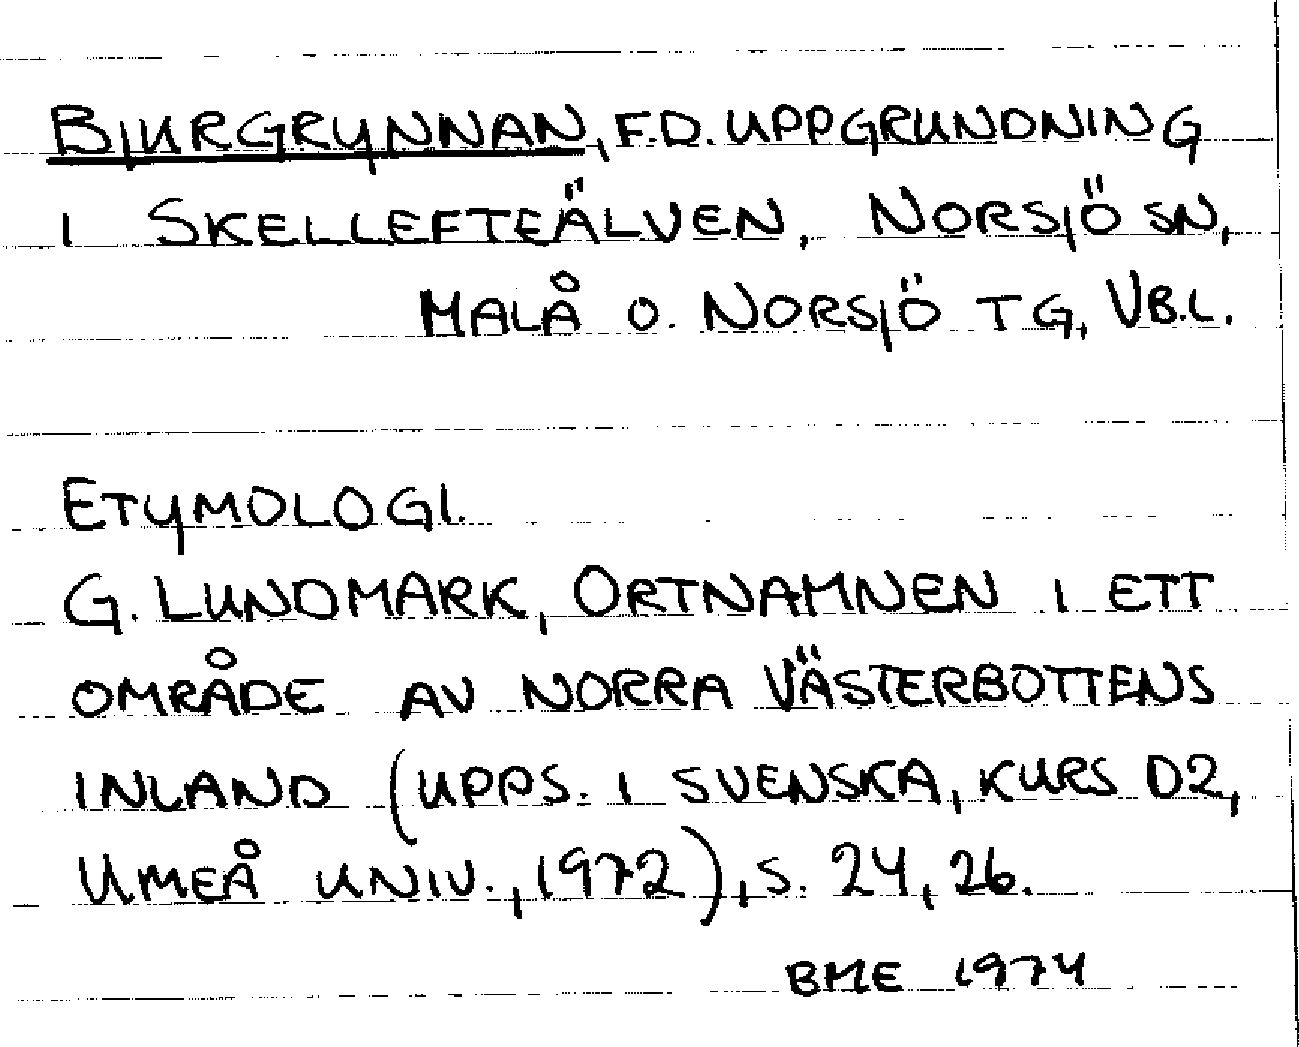 BJURGRYNNAN, F.D. UPPGRUNDNING
I SKELLEFTEÄLVEN, NORSJÖ SN,
MALÅ O. NORSJÖ TG, VB.L.
ETYMOLOGI.
G. LUNDMARK, ORTNAMNEN I ETT
OMRÅDE AV NORRA VÄSTERBOTTENS
INLAND (UPPS. I SVENSKA, KURS D2,
UMEÅ UNIV., 1972), S. 24, 26.
BME 1974